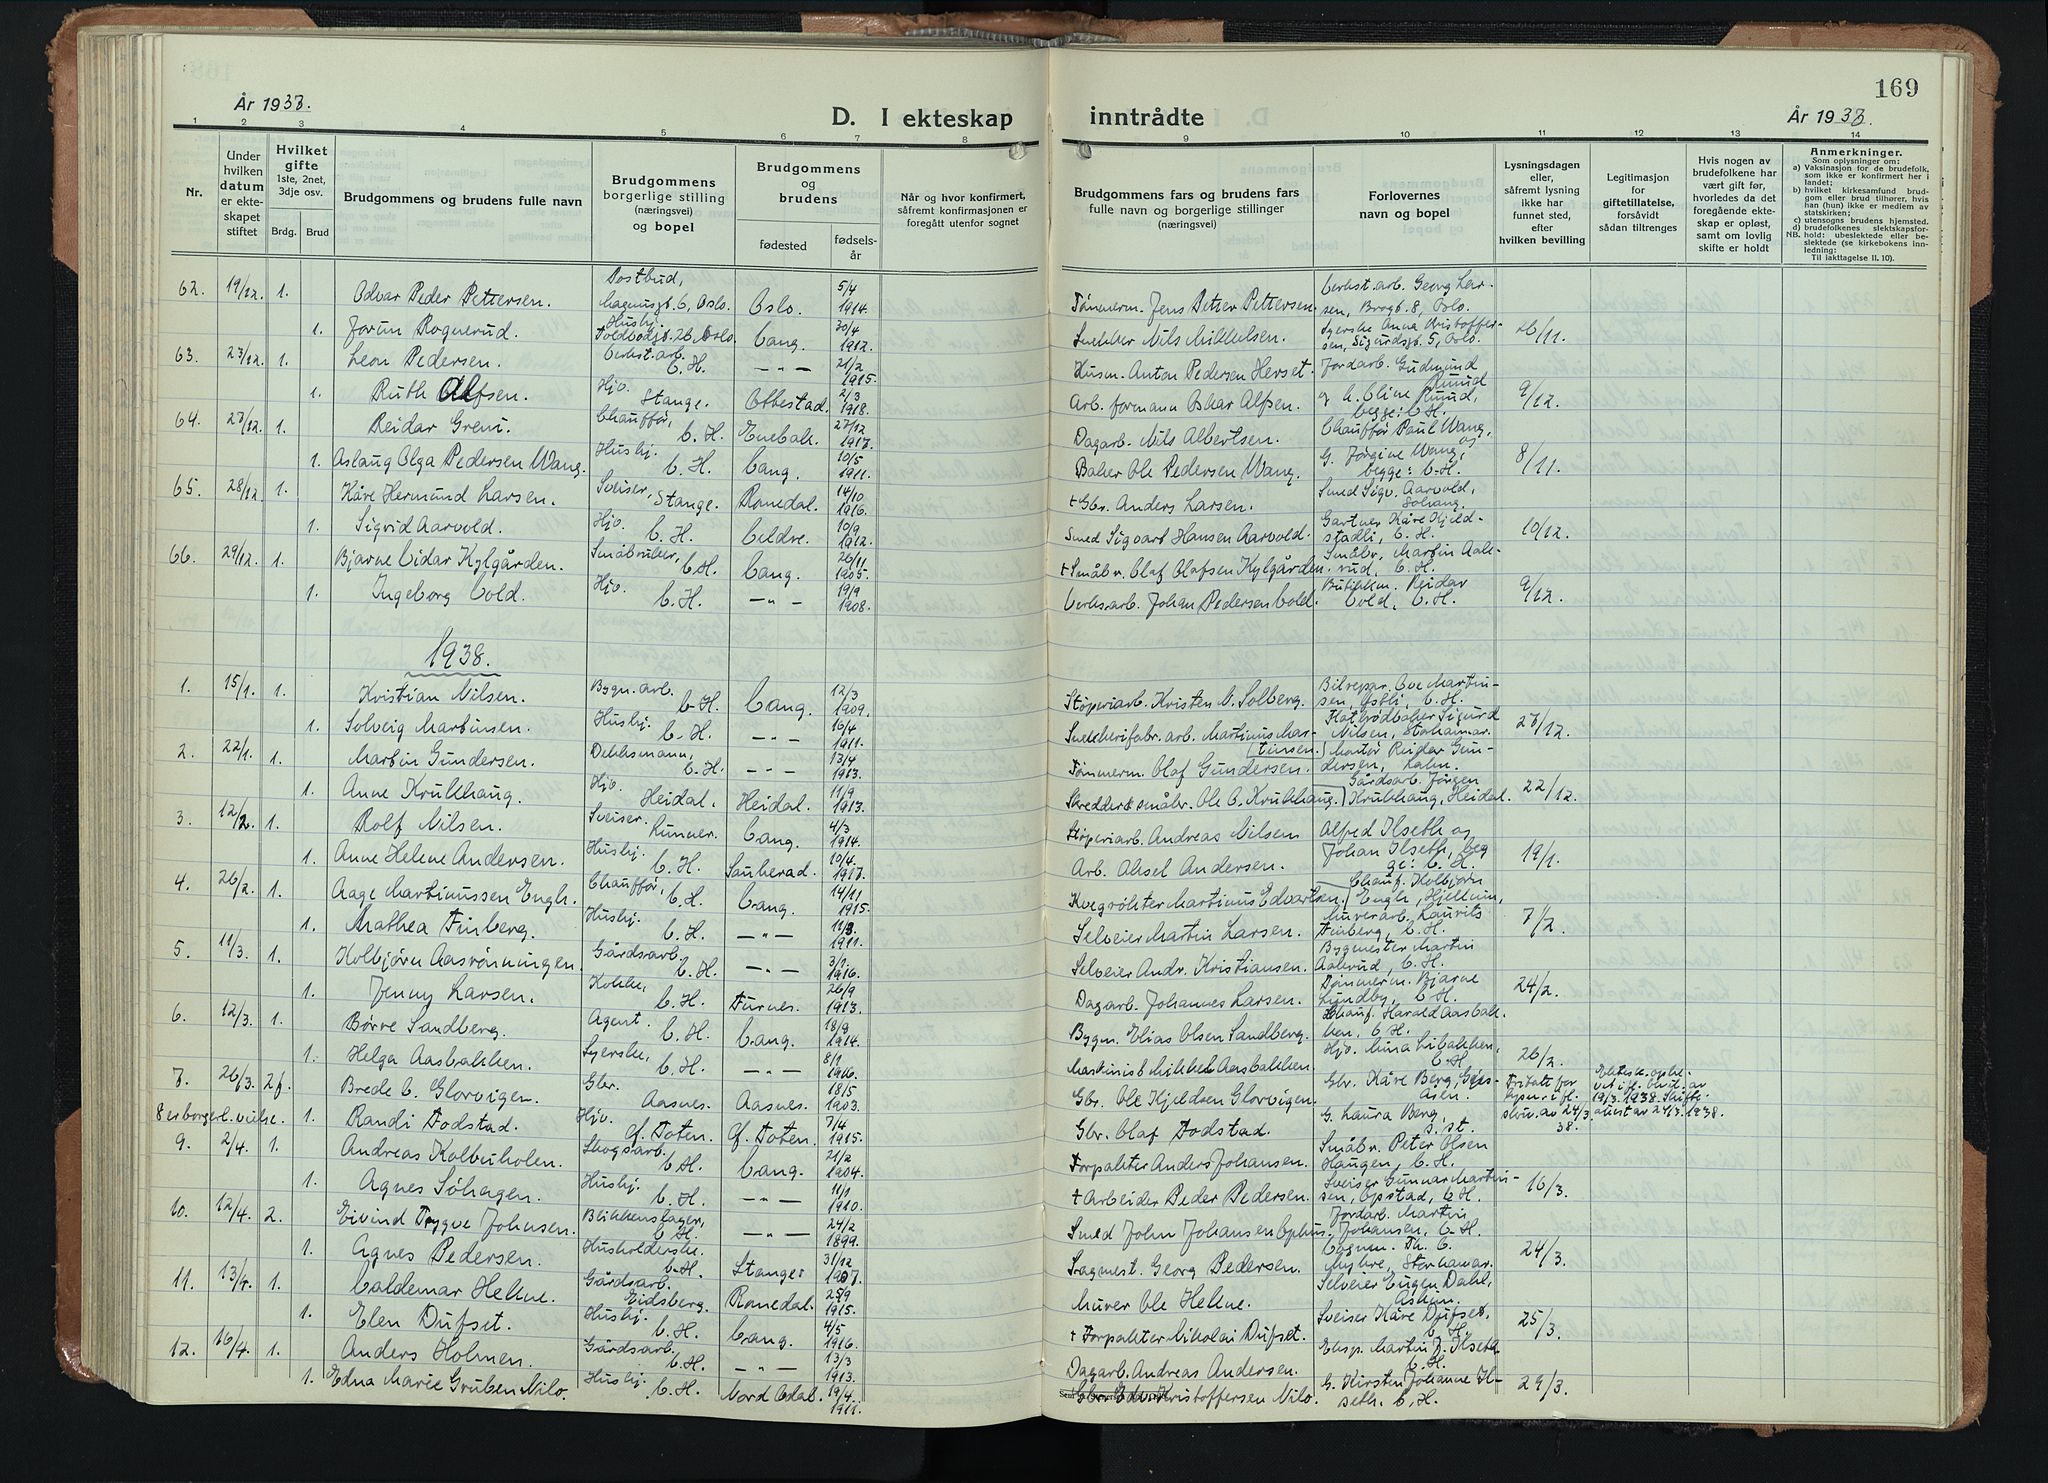 169
År 1937.
D. I ekteskap inntrådte
År 1937.
1 2 3 4 5 6 7 8 9 10 11 12 13 14
Nr.
Under hvilken datum er ekteskapet stiftet
Hvilket gifte 1ste, 2net, 3dje osv.
Brdg. Brud
Brudgommens og brudens fulle navn
Brudgommens borgerlige stilling (næringsvei) og bopel
Brudgommens og brudens
fødested
fødselsår
Når og hvor konfirmert, såfremt konfirmasjonen er foregått utenfor sognet
Brudgommens fars og brudens fars fulle navn og borgerlige stillinger (næringsvei)
Forlovernes navn og bopel
Lysningsdagen eller, såfremt lysning ikke har funnet sted, efter hvilken bevilling
Legitimasjon for giftetillatelse, forsåvidt sådan tiltrenges
Hvis nogen av brudefolkene har vært gift før, hvorledes da det foregående ekteskap er opløst, samt om lovlig skifte er holdt
Anmerkninger.
Som oplysninger om:
a) Vaksinasjon for de brudefolk, som ikke er konfirmert her i landet;
b) hvilket kirkesamfund brudgom eller brud tilhører, hvis han (hun) ikke er medlem av statskirken;
c) utensogns brudens hjemsted.
d) brudefolkenes slektskapsforhold: ubeslektede eller beslektede (se kirkebokens innledning:
NB. Til iakttagelse II. 10).
62. 19/12. 1. Odvar Peder Pettersen. Postbud, Magnusgt. 6, Oslo. Oslo. 5/4 1914. Tømmerm. Jens Petter Pettersen. Verkst. arb. Georg Larsen, Borgt. 8, Oslo.
1. Jorun Rognerud. Husbj. Toldbodgt. 26, Oslo. Vang. 30/4 1912. Snekker Nils Mikkelsen. Syerske Anna Kristoffersen, Sigurdsgt. 5, Oslo. 26/11.
63. 27/12. 1. Leon Pedersen. Verkst. arb. V. H. —"— 21/2 1915. Husm. Anton Pedersen Herset. Jordarb. Gudmund Ruud
1. Ruth Alfsen. Hjv. Stange. Ottestad. 2/3 1918. Arb. formann Oskar Alfsen. og h. Eline Ruud, begge: V. H. 9/12.
64. 27/12. 1. Reidar Greni. Chauffør, V. H. Enebak. 27/12 1917. Dagarb. Nils Albertsen. Chauffør Paul Wang, og
1. Aslaug Olga Pedersen Wang. Husbj. V. H. Vang. 10/5 1911. Baker Ole Pedersen Wang. G. Jørgine Wang, begge: V. H. 8/11.
65. 28/12. 1. Kåre Hermund Larsen. Sveiser, Stange. Romedal. 14/10 1916. + Gbr. Anders Larsen. Smed Sigv. Aarvold, Solvang.
1. Sigrid Aarvold. Hjv. V. H. Veldre. 10/9 1912. Smed Sigvart Hansen Aarvold. Gartner Kåre Kjeldstadli, V. H. 10/12.
66. 29/12. 1. Bjarne Vidar Kylgården. Småbruker, V. H. Vang. 26/11 1905. + Småbr. Olaf Olafsen Kylgården. Småbr. Martin Aalerud, V. H.
1. Ingeborg Vold. Hjv. V. H. —"— 19/9 1908. Verksarb. Johan Pedersen Vold. Butikkm. Reidar Vold, V. H. 9/12.
1938.
1. 15/1. 1. Kristian Nilsen. Bygn. arb. V. H. Vang. 12/3 1909. Støperiarb. Kristen N. Solberg. Bilrepar. Ove Martinsen, Østli, V. H.
1. Solveig Martinsen. Husbj. V. H. —"— 16/4 1911. Snekkerifabr. arb. Martinus Martinsen. Flatbrødbaker Sigurd Nilsen, Stahamar. 27/12.
2. 22/1. 1. Martin Gundersen. Dekksmann, V. H. —"— 13/4 1913. Tømmerm. Olaf Gundersen. Murer Reidar Gundersen, Hakn.
1. Anne Krukhaug. Hjv. Heidal. Heidal. 11/9 1913. Skredder & småbr. Ole O. Krukhaug. Gårdsarb. Jørgen Krukhaug, Heidal. 22/12.
3. 12/2. 1. Rolf Nilsen. Sveiser. Lunner. Vang. 4/3 1914. Støperiarb. Andreas Nilsen Alfred Ilseth og
1. Anne Helene Andersen. Husbj. V. H. Sauherad. 10/4. 1917. Arb. Aksel Andersen. Johan Ilseth, begge: V. H. 19/1.
4. 26/2. 1. Aage Martinussen Engh. Chauffør, V. H. Vang. 14/11 1915. Kvegrøkter Martinus Edvartsen. Chauf. Kolbjørn Engh, Hjellum,
1. Mathea Finberg. Husbj. V. H. —"— 11/3. 1911. Selveier Martin Larsen. Murerarb. Laurits Finberg, V. H. 7/2.
5. 11/3. 1. Kolbjørn Aasrønningen. Gårdsarb. V. H. —"— 3/1. 1916. Selveier Andr. Kristiansen. Bygmester Martin Aalerud, V. H.
1. Jenny Larsen. Kokke, V. H. Furnes. 26/9 1913. Dagarb. Johannes Larsen. Tømmerm. Bjarne Lundby, V. H. 24/2.
6. 12/3. 1. Børre Sandberg. Agent. V. H. Vang. 18/8 1914. Bygm. Elias Olsen Sandberg. Chauf. Harald Aasbakken, V. H.
1. Helga Aasbakken. Syerske, V. H. —"— 8/1 1916. Maskinist Mikkel Aasbakken. Hjv. Mina Libakken, V. H. 26/2.
7. 26/3. 2f. Brede O. Glorvigen. Gbr. Aasnes. Aasnes. 18/5 1903. Gbr. Ole Kjeldsen Glorvigen. Gbr. Kåre Berg, Gjesåsen. Fritatt for lysn. ifl. skriv. av 24/3. 38. Ektesk. opløst ifl. bevil. av 19/3. 1938. Skifteattest av 24/3. 1938.
8 er borgerl. vielse. 1. Randi Fodstad. Hjv. Ø. Toten. Ø. Toten. 7/4 1915. Gbr. Olaf Fodstad. G. Laura Berg, s. st.
9. 2/4. 1. Andreas Kolbuholen. Skogsarb. V. H. Vang. 21/2 1904. Forpakter Anders Johansen. Småbr. Peter Olsen Haugen, V. H.
1. Agnes Søhagen. Husbj. V. H. —"— 11/1 1910. + Arbeider Peder Pedersen. Sveiser Gunnar Martinsen, Opstad, V. H. 16/3.
10. 12/4. 2. Eivind Trygve Johnsen. Blikkenslager, V. H. —"— 24/2 1899. Smed John Johansen Ophus. Jordarb. Martin Johansen, V. H.
1. Agnes Pedersen. Husholderske. V. H. Stange. 31/12 1907. Sagmest. Georg Pedersen. Vognm. Th. O. Myhre, Storhamar. 24/3.
11. 13/4. 1. Valdemar Hekne. Gårdsarb. Eidsberg. Romedal. 25/9 1915. Murer Ole Hekne. Selveier Eugen Dahl. Askim.
1. Elen Dufset. Husbj. V. H. Vang. 4/5 1916. + Forpakter Nikolai Dufset. Sveiser Kåre Dufset, V. H. 25/3.
12. 16/4. 1. Anders Holmen. Gårdsarb. V. H. —"— 13/3 1913. Dagarb. Andreas Andersen. Eksp. Martin J. Ilseth V. H.
1. Edna Marie Gruben Nilo. Husbj. V. H. Nord Odal. 19/4. 1911. Gbr. Edv. Kristoffersen Nilo. G. Kirsten Johanne Ilseth. V. H. 29/3.